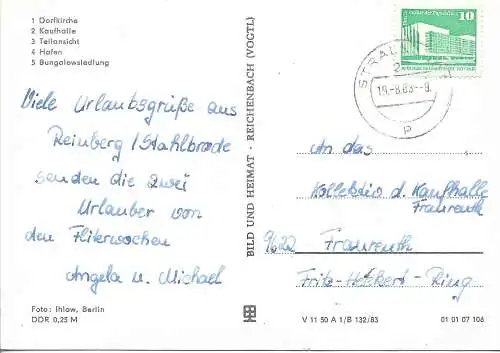 1 Dorfkirche
2 Kaufhalle
3 Teilansicht
4 Hafen
5 Bungalowsiedlung
Viele Urlaubsgrüße aus
Reinberg / Stahlbrode
senden die zwei
Urlauber von
den Fliterwochen
Angela u. Michael
Foto: Ihlow, Berlin
DDR 0,25 M
BILD UND HEIMAT · REICHENBACH (VOGTL)
10
STRALSUND
2
19.-8.83.-9
p
An das
Kollektiv d. Kaufhalle
Fraureuth
9622 Fraureuth
Fritz-Heckert-Ring
V 11 50 A 1/B 132/83
01 01 07 106